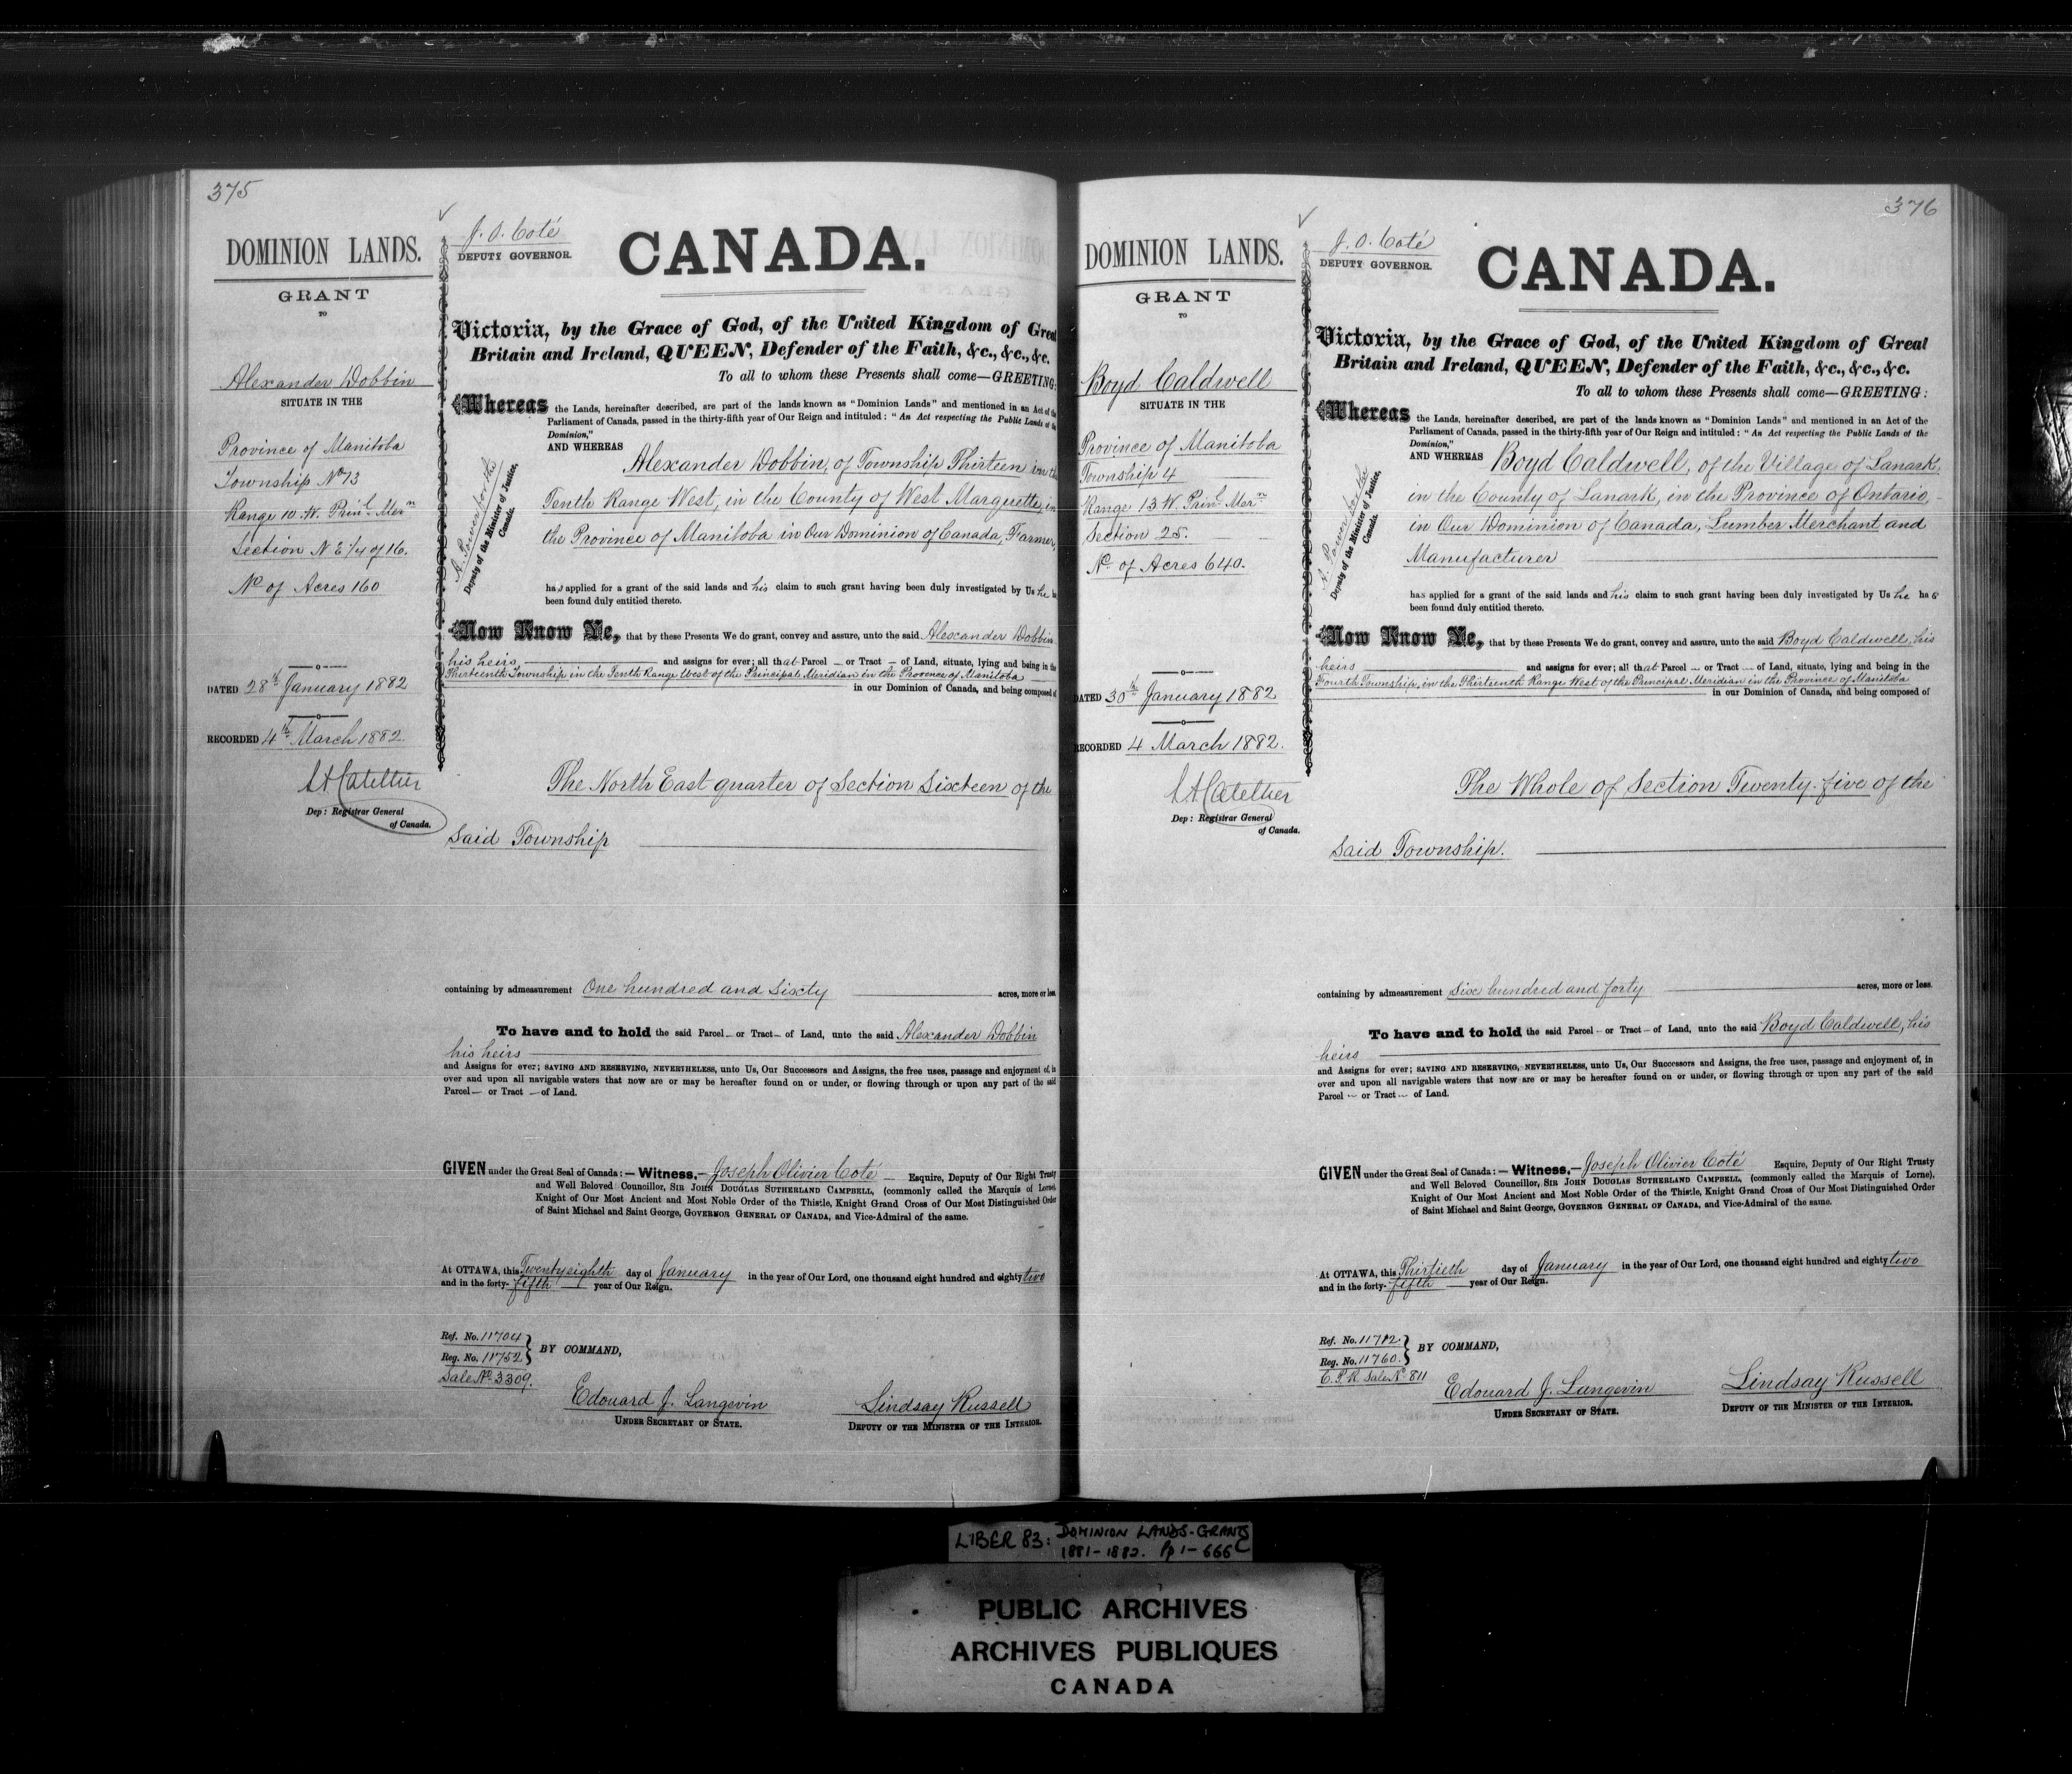 375
DOMINION LANDS.
GRANT
TO
Alexander Dobbin
SITUATE IN THE
Province of Manitoba
Township No 13
Range 10 W. Prinl Mern
Section N E 1/4 of 16.
No of Acres 160
DATED 28th January 1882
RECORDED 4th March 1882.
Dep: Registrar General
of Canada.
J. O. Coté
DEPUTY GOVERNOR.
CANADA.
Victoria, by the Grace of God, of the United Kingdom of Great
Britain and Ireland, QUEEN, Defender of the Faith, &c., &c., &c.
To all to whom these Presents shall come—GREETING:
A. Power for the
Deputy of the Minister of Justice,
Canada.
Whereas the Lands, hereinafter described, are part of the lands known as "Dominion Lands" and mentioned in an Act of the
Parliament of Canada, passed in the thirty-fifth year of Our Reign and intituled: "An Act respecting the Public Lands of the
Dominion,"
AND WHEREAS Alexander Dobbin, of Township Thirteen in the
Tenth Range West, in the County of West Marquette, in
the Province of Manitoba in Our Dominion of Canada, Farmer,
has applied for a grant of the said lands and his claim to such grant having been duly investigated by Us he has
been found duly entitled thereto.
Now Know Ye, that by these Presents We do grant, convey and assure, unto the said Alexander Dobbin
his heirs and assigns for ever; all that Parcel — or Tract — of Land, situate, lying and being in the
Thirteenth Township in the Tenth Range West of the Principal Meridian in the Province of Manitoba
in our Dominion of Canada, and being composed of
The North East quarter of Section Sixteen of the
said Township
containing by admeasurement One hundred and sixty acres, more or less.
To have and to hold the said Parcel — or Tract — of Land, unto the said Alexander Dobbin
his heirs
and Assigns for ever; SAVING AND RESERVING, NEVERTHELESS, unto Us, Our Successors and Assigns, the free uses, passage and enjoyment of, in
over and upon all navigable waters that now are or may be hereafter found on or under, or flowing through or upon any part of the said
Parcel — or Tract — of Land.
GIVEN under the Great Seal of Canada: — Witness, — Joseph Olivier Coté — Esquire, Deputy of Our Right Trusty
and Well Beloved Councillor, SIR JOHN DOUGLAS SUTHERLAND CAMPBELL, (commonly called the Marquis of Lorne),
Knight of Our Most Ancient and Most Noble Order of the Thistle, Knight Grand Cross of Our Most Distinguished Order
of Saint Michael and Saint George, GOVERNOR GENERAL OF CANADA, and Vice-Admiral of the same.
At OTTAWA, this Twenty eighth day of January in the year of Our Lord, one thousand eight hundred and eighty two
and in the forty-fifth year of Our Reign.
Ref. No. 11704
Reg. No. 11752
BY COMMAND,
Sale No 3309.
Edouard J. Langevin
UNDER SECRETARY OF STATE.
Lindsay Russell
DEPUTY OF THE MINISTER OF THE INTERIOR.
376
DOMINION LANDS.
GRANT
TO
Boyd Caldwell
SITUATE IN THE
Province of Manitoba
Township 4
Range 13 W. Prinl Mern
Section 25.
No of Acres 640.
DATED 30th January 1882
RECORDED 4 March 1882.
Dep: Registrar General
of Canada.
J. O. Coté
DEPUTY GOVERNOR.
CANADA.
Victoria, by the Grace of God, of the United Kingdom of Great
Britain and Ireland, QUEEN, Defender of the Faith, &c., &c., &c.
To all to whom these Presents shall come—GREETING:
A. Power for the
Deputy of the Minister of Justice,
Canada.
Whereas the Lands, hereinafter described, are part of the lands known as "Dominion Lands" and mentioned in an Act of the
Parliament of Canada, passed in the thirty-fifth year of Our Reign and intituled: "An Act respecting the Public Lands of the
Dominion,"
AND WHEREAS Boyd Caldwell, of the Village of Lanark,
in the County of Lanark, in the Province of Ontario,
in Our Dominion of Canada, Lumber Merchant and
Manufacturer
has applied for a grant of the said lands and his claim to such grant having been duly investigated by Us he has
been found duly entitled thereto.
Now Know Ye, that by these Presents We do grant, convey and assure, unto the said Boyd Caldwell, his
heirs and assigns for ever; all that Parcel — or Tract — of Land, situate, lying and being in the
Fourth Township, in the Thirteenth Range West of the Principal Meridian in the Province of Manitoba
in our Dominion of Canada, and being composed of
The Whole of Section Twenty-five of the
said Township.
containing by admeasurement Six hundred and forty acres, more or less.
To have and to hold the said Parcel — or Tract — of Land, unto the said Boyd Caldwell, his
heirs
and Assigns for ever; SAVING AND RESERVING, NEVERTHELESS, unto Us, Our Successors and Assigns, the free uses, passage and enjoyment of, in
over and upon all navigable waters that now are or may be hereafter found on or under, or flowing through or upon any part of the said
Parcel — or Tract — of Land.
GIVEN under the Great Seal of Canada: — Witness, — Joseph Olivier Coté Esquire, Deputy of Our Right Trusty
and Well Beloved Councillor, SIR JOHN DOUGLAS SUTHERLAND CAMPBELL, (commonly called the Marquis of Lorne),
Knight of Our Most Ancient and Most Noble Order of the Thistle, Knight Grand Cross of Our Most Distinguished Order
of Saint Michael and Saint George, GOVERNOR GENERAL OF CANADA, and Vice-Admiral of the same.
At OTTAWA, this Thirtieth day of January in the year of Our Lord, one thousand eight hundred and eighty two
and in the forty-fifth year of Our Reign.
Ref. No. 11712.
Reg. No. 11760.
BY COMMAND,
C.P.R. Sale No 811
Edouard J. Langevin
UNDER SECRETARY OF STATE.
Lindsay Russell
DEPUTY OF THE MINISTER OF THE INTERIOR.
LIBER 83: DOMINION LANDS-GRANTS
1881-1882. Pp 1-666C
PUBLIC ARCHIVES
ARCHIVES PUBLIQUES
CANADA